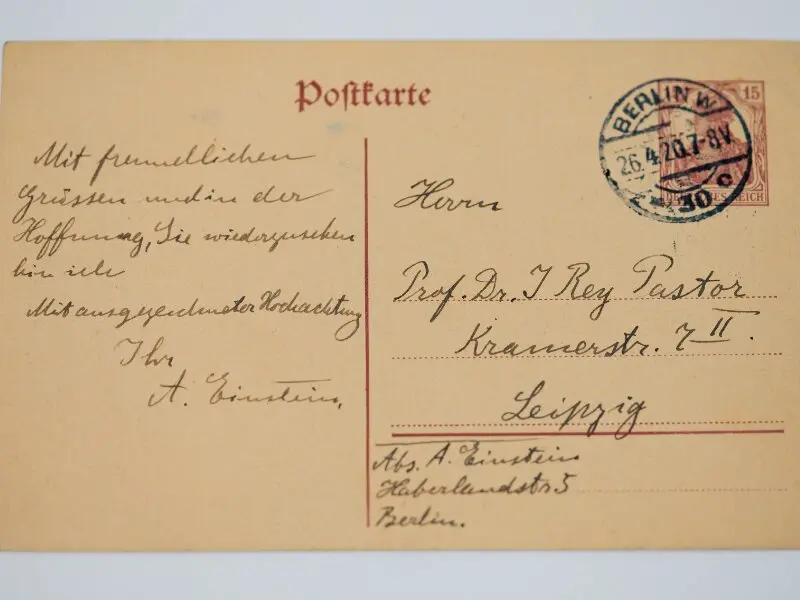 Postkarte
BERLIN W
15
26.4.20.7-8V
30 c
Mit freundlichen
Grüssen und in der
Hoffnung, Sie wiederzusehen
bin ich
Mit ausgezeichneter Hochachtung
Ihr
A. Einstein.
Herrn
Prof. Dr. J Rey Pastor
Kramerstr. 7 II.
Leipzig
Abs. A. Einstein
Haberlandstr 5
Berlin.